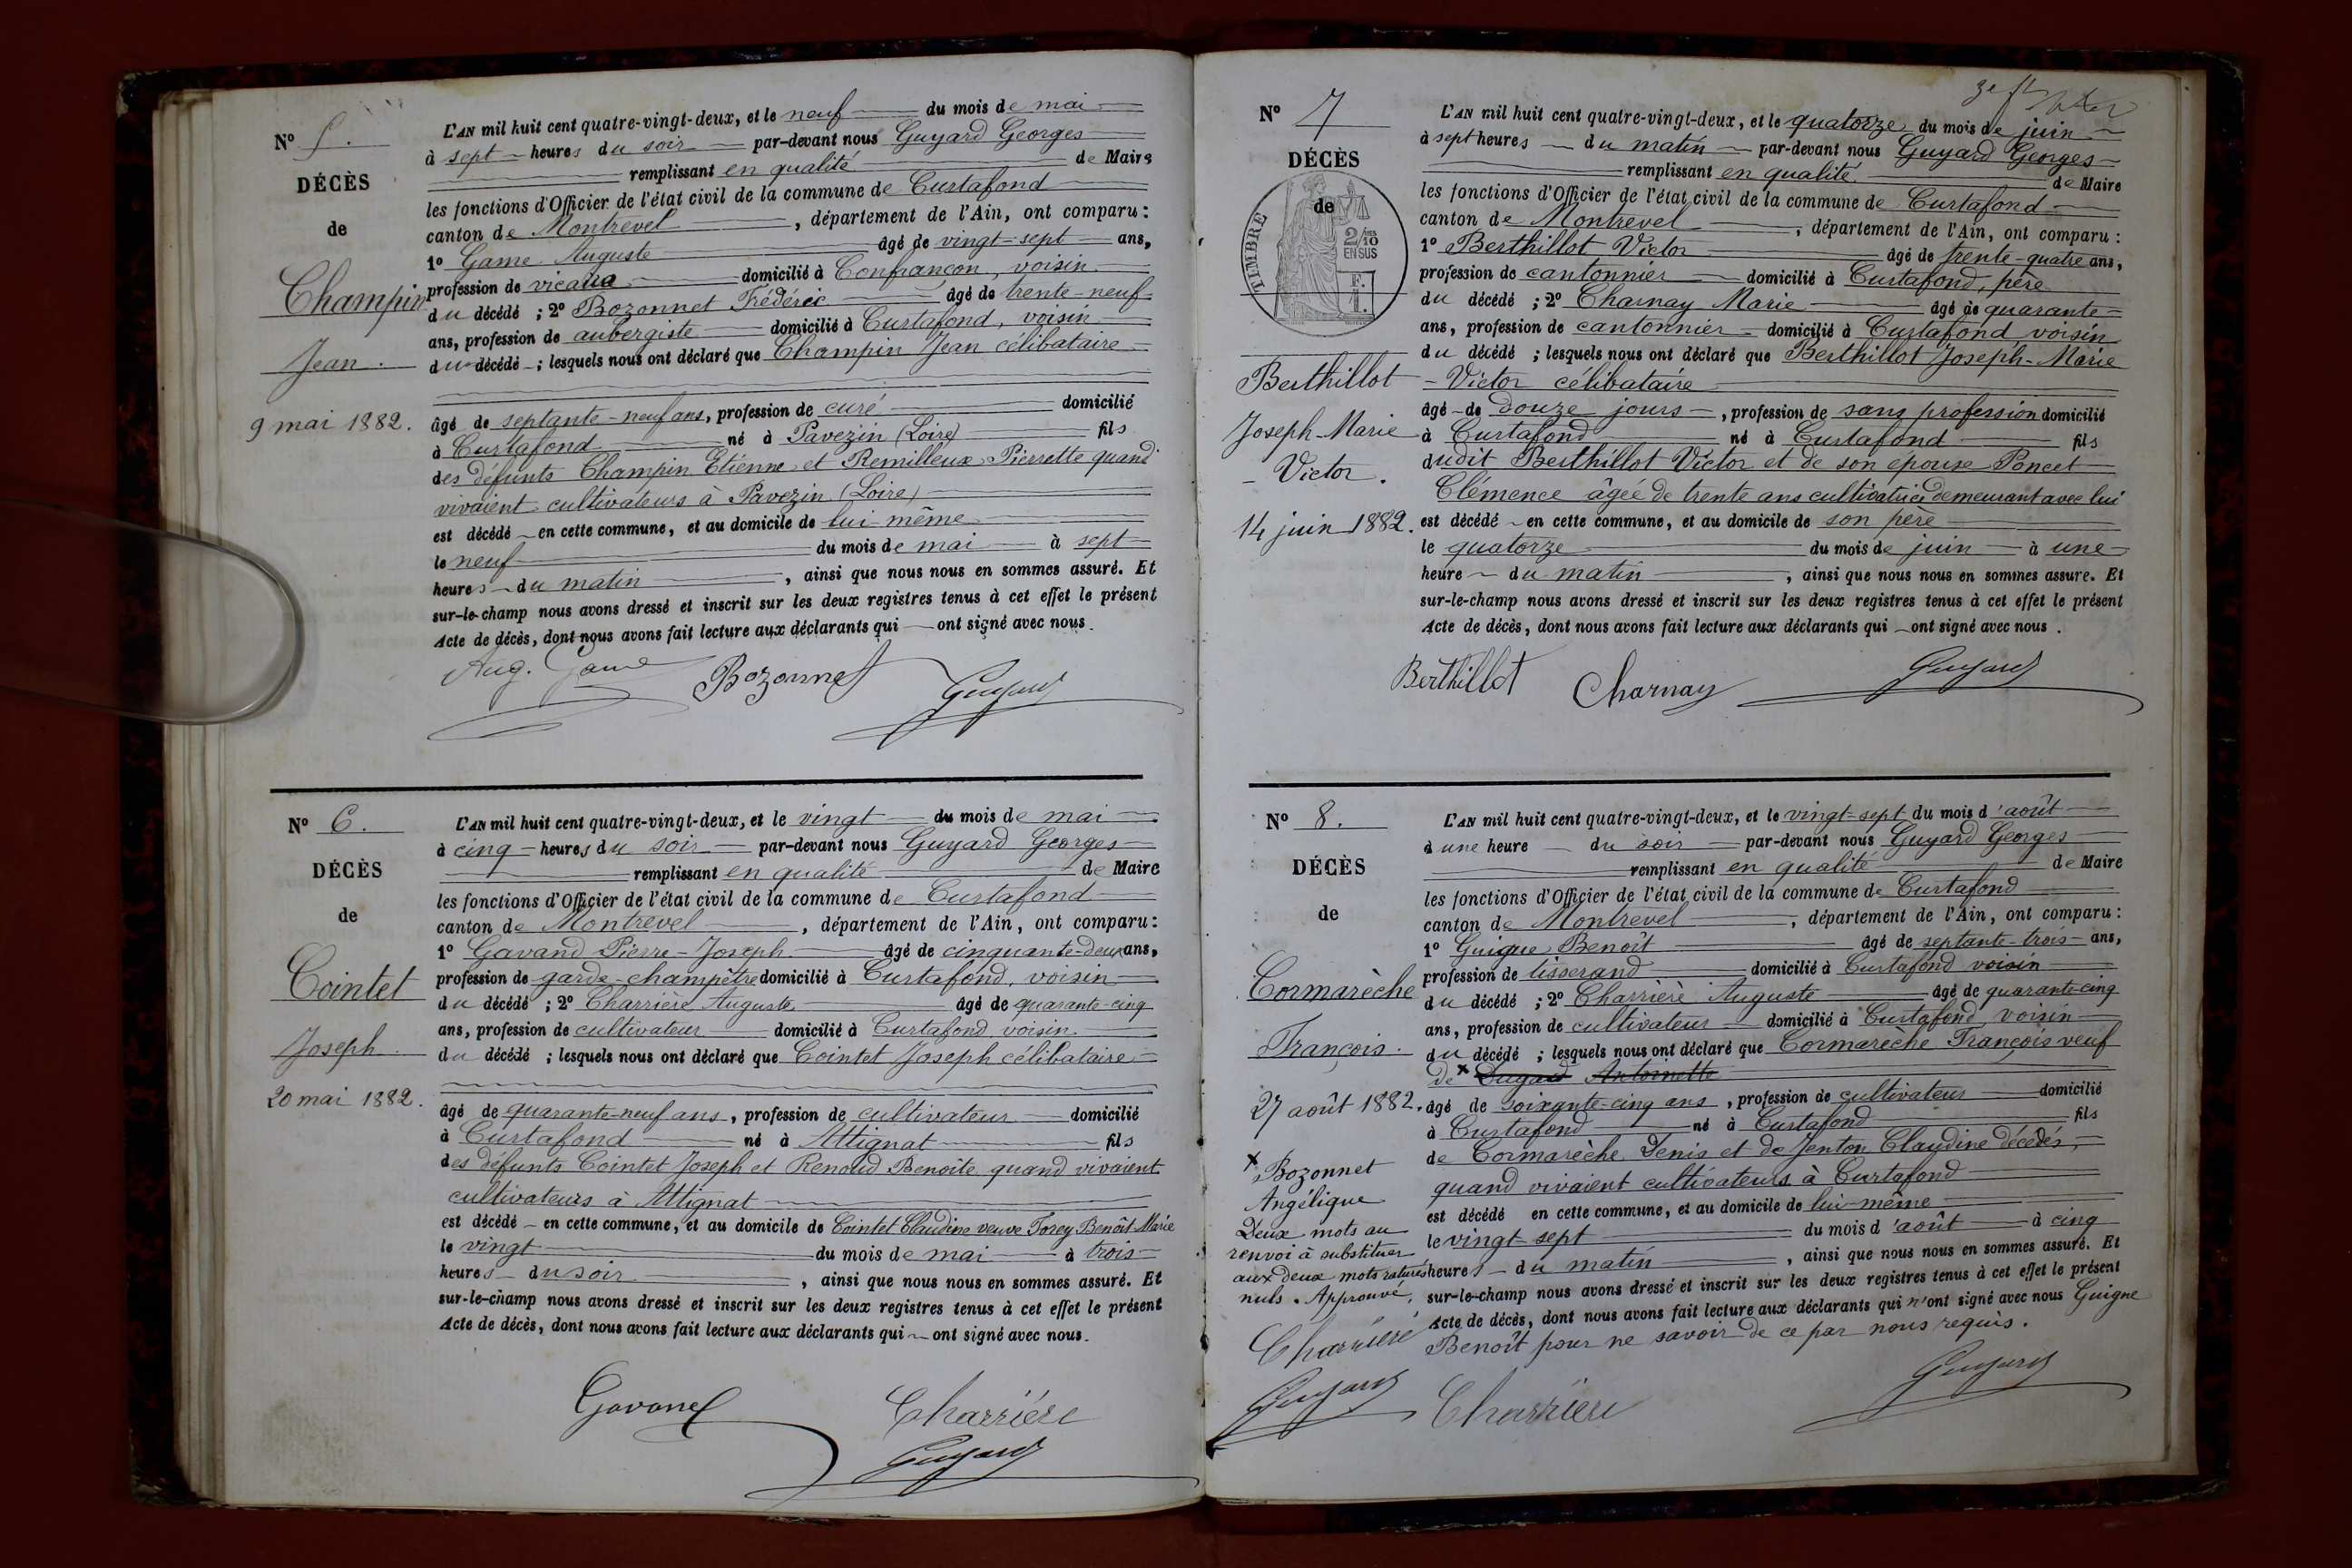 N° 5.
DÉCÈS
de
Champin
Jean.
9 mai 1882.
L'AN mil huit cent quatre-vingt-deux, et le neuf du mois de mai
à sept heures du soir par-devant nous Guyard Georges
remplissant en qualité de Maire
les fonctions d'Officier de l'état civil de la commune de Curtafond
canton de Montrevel, département de l'Ain, ont comparu :
1° Game Auguste âgé de vingt-sept ans,
profession de vicaire domicilié à Confrançon, voisin
du décédé ; 2° Bozonnet Frédéric âgé de trente-neuf
ans, profession de aubergiste domicilié à Curtafond, voisin
du décédé ; lesquels nous ont déclaré que Champin Jean célibataire
âgé de septante-neuf ans, profession de curé domicilié
à Curtafond né à Pavezin (Loire) fils
des défunts Champin Etienne et Remilleux Pierrette quand
vivaient cultivateurs à Pavezin (Loire)
est décédé en cette commune, et au domicile de lui même
le neuf du mois de mai à sept
heures du matin, ainsi que nous nous en sommes assuré. Et
sur-le-champ nous avons dressé et inscrit sur les deux registres tenus à cet effet le présent
Acte de décès, dont nous avons fait lecture aux déclarants qui ont signé avec nous.
Aug. Game Bozonnet Guyard
N° 6.
DÉCÈS
de
Cointet
Joseph
20 mai 1882.
L'AN mil huit cent quatre-vingt-deux, et le vingt du mois de mai
à cinq heures du soir par-devant nous Guyard Georges
remplissant en qualité de Maire
les fonctions d'Officier de l'état civil de la commune de Curtafond
canton de Montrevel, département de l'Ain, ont comparu :
1° Gavand Pierre-Joseph âgé de cinquante-deux ans,
profession de garde-champêtre domicilié à Curtafond, voisin
du décédé ; 2° Charrière Auguste âgé de quarante-cinq
ans, profession de cultivateur domicilié à Curtafond voisin
du décédé ; lesquels nous ont déclaré que Cointet Joseph célibataire
âgé de quarante-neuf ans, profession de cultivateur domicilié
à Curtafond né à Attignat fils
des défunts Cointet Joseph et Renoud Benoîte quand vivaient
cultivateurs à Attignat
est décédé en cette commune, et au domicile de Cointet Claudine veuve Forey Benoît-Marie
le vingt du mois de mai à trois
heures du soir, ainsi que nous nous en sommes assuré. Et
sur-le-champ nous avons dressé et inscrit sur les deux registres tenus à cet effet le présent
Acte de décès, dont nous avons fait lecture aux déclarants qui ont signé avec nous.
Gavand Charrière
Guyard
N° 7
DÉCÈS
de
TIMBRE
2/10
EN SUS
F.
1.
Berthillot
Joseph-Marie
-Victor.
14 juin 1882.
L'AN mil huit cent quatre-vingt-deux, et le quatorze du mois de juin
à sept heures du matin par-devant nous Guyard Georges
remplissant en qualité de Maire
les fonctions d'Officier de l'état civil de la commune de Curtafond
canton de Montrevel, département de l'Ain, ont comparu :
1° Berthillot Victor âgé de trente-quatre ans,
profession de cantonnier domicilié à Curtafond, père
du décédé ; 2° Charnay Marie âgé de quarante
ans, profession de cantonnier domicilié à Curtafond voisin
du décédé ; lesquels nous ont déclaré que Berthillot Joseph-Marie
-Victor célibataire
âgé de douze jours, profession de sans profession domicilié
à Curtafond né à Curtafond fils
dudit Berthillot Victor et de son épouse Poncet
Clémence âgée de trente ans cultivatrice demeurant avec lui
est décédé en cette commune, et au domicile de son père
le quatorze du mois de juin à une
heure du matin, ainsi que nous nous en sommes assuré. Et
sur-le-champ nous avons dressé et inscrit sur les deux registres tenus à cet effet le présent
Acte de décès, dont nous avons fait lecture aux déclarants qui ont signé avec nous.
Berthillot Charnay Guyard
N° 8.
DÉCÈS
de
Cormarèche
François.
27 août 1882.
x Bozonnet
Angélique
Deux mots au
renvoi à substituer
aux deux mots raturés
nuls. Approuvé.
Charrière
Guyard
L'AN mil huit cent quatre-vingt-deux, et le vingt-sept du mois d'août
à une heure du soir par-devant nous Guyard Georges
remplissant en qualité de Maire
les fonctions d'Officier de l'état civil de la commune de Curtafond
canton de Montrevel, département de l'Ain, ont comparu :
1° Guigue Benoît âgé de septante-trois ans,
profession de tisserand domicilié à Curtafond voisin
du décédé ; 2° Charrière Auguste âgé de quarante-cinq
ans, profession de cultivateur domicilié à Curtafond voisin
du décédé ; lesquels nous ont déclaré que Cormarèche François veuf
de x Dugard Antoinette
âgé de soixante-cinq ans, profession de cultivateur domicilié
à Curtafond né à Curtafond fils
de Cormarèche Denis et de Jenton Claudine décédés,
quand vivaient cultivateurs à Curtafond
est décédé en cette commune, et au domicile de lui-même
le vingt-sept du mois d'août à cinq
heures du matin, ainsi que nous nous en sommes assuré. Et
sur-le-champ nous avons dressé et inscrit sur les deux registres tenus à cet effet le présent
Acte de décès, dont nous avons fait lecture aux déclarants qui n'ont signé avec nous Guigue
Benoît pour ne savoir de ce par nous requis.
Charrière Guyard